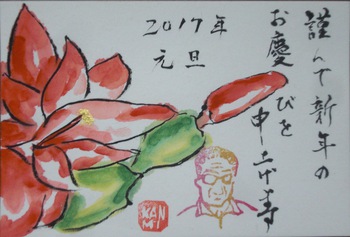 謹んで新年の
お慶びを
申上げ寿
2017年
元旦
KAN